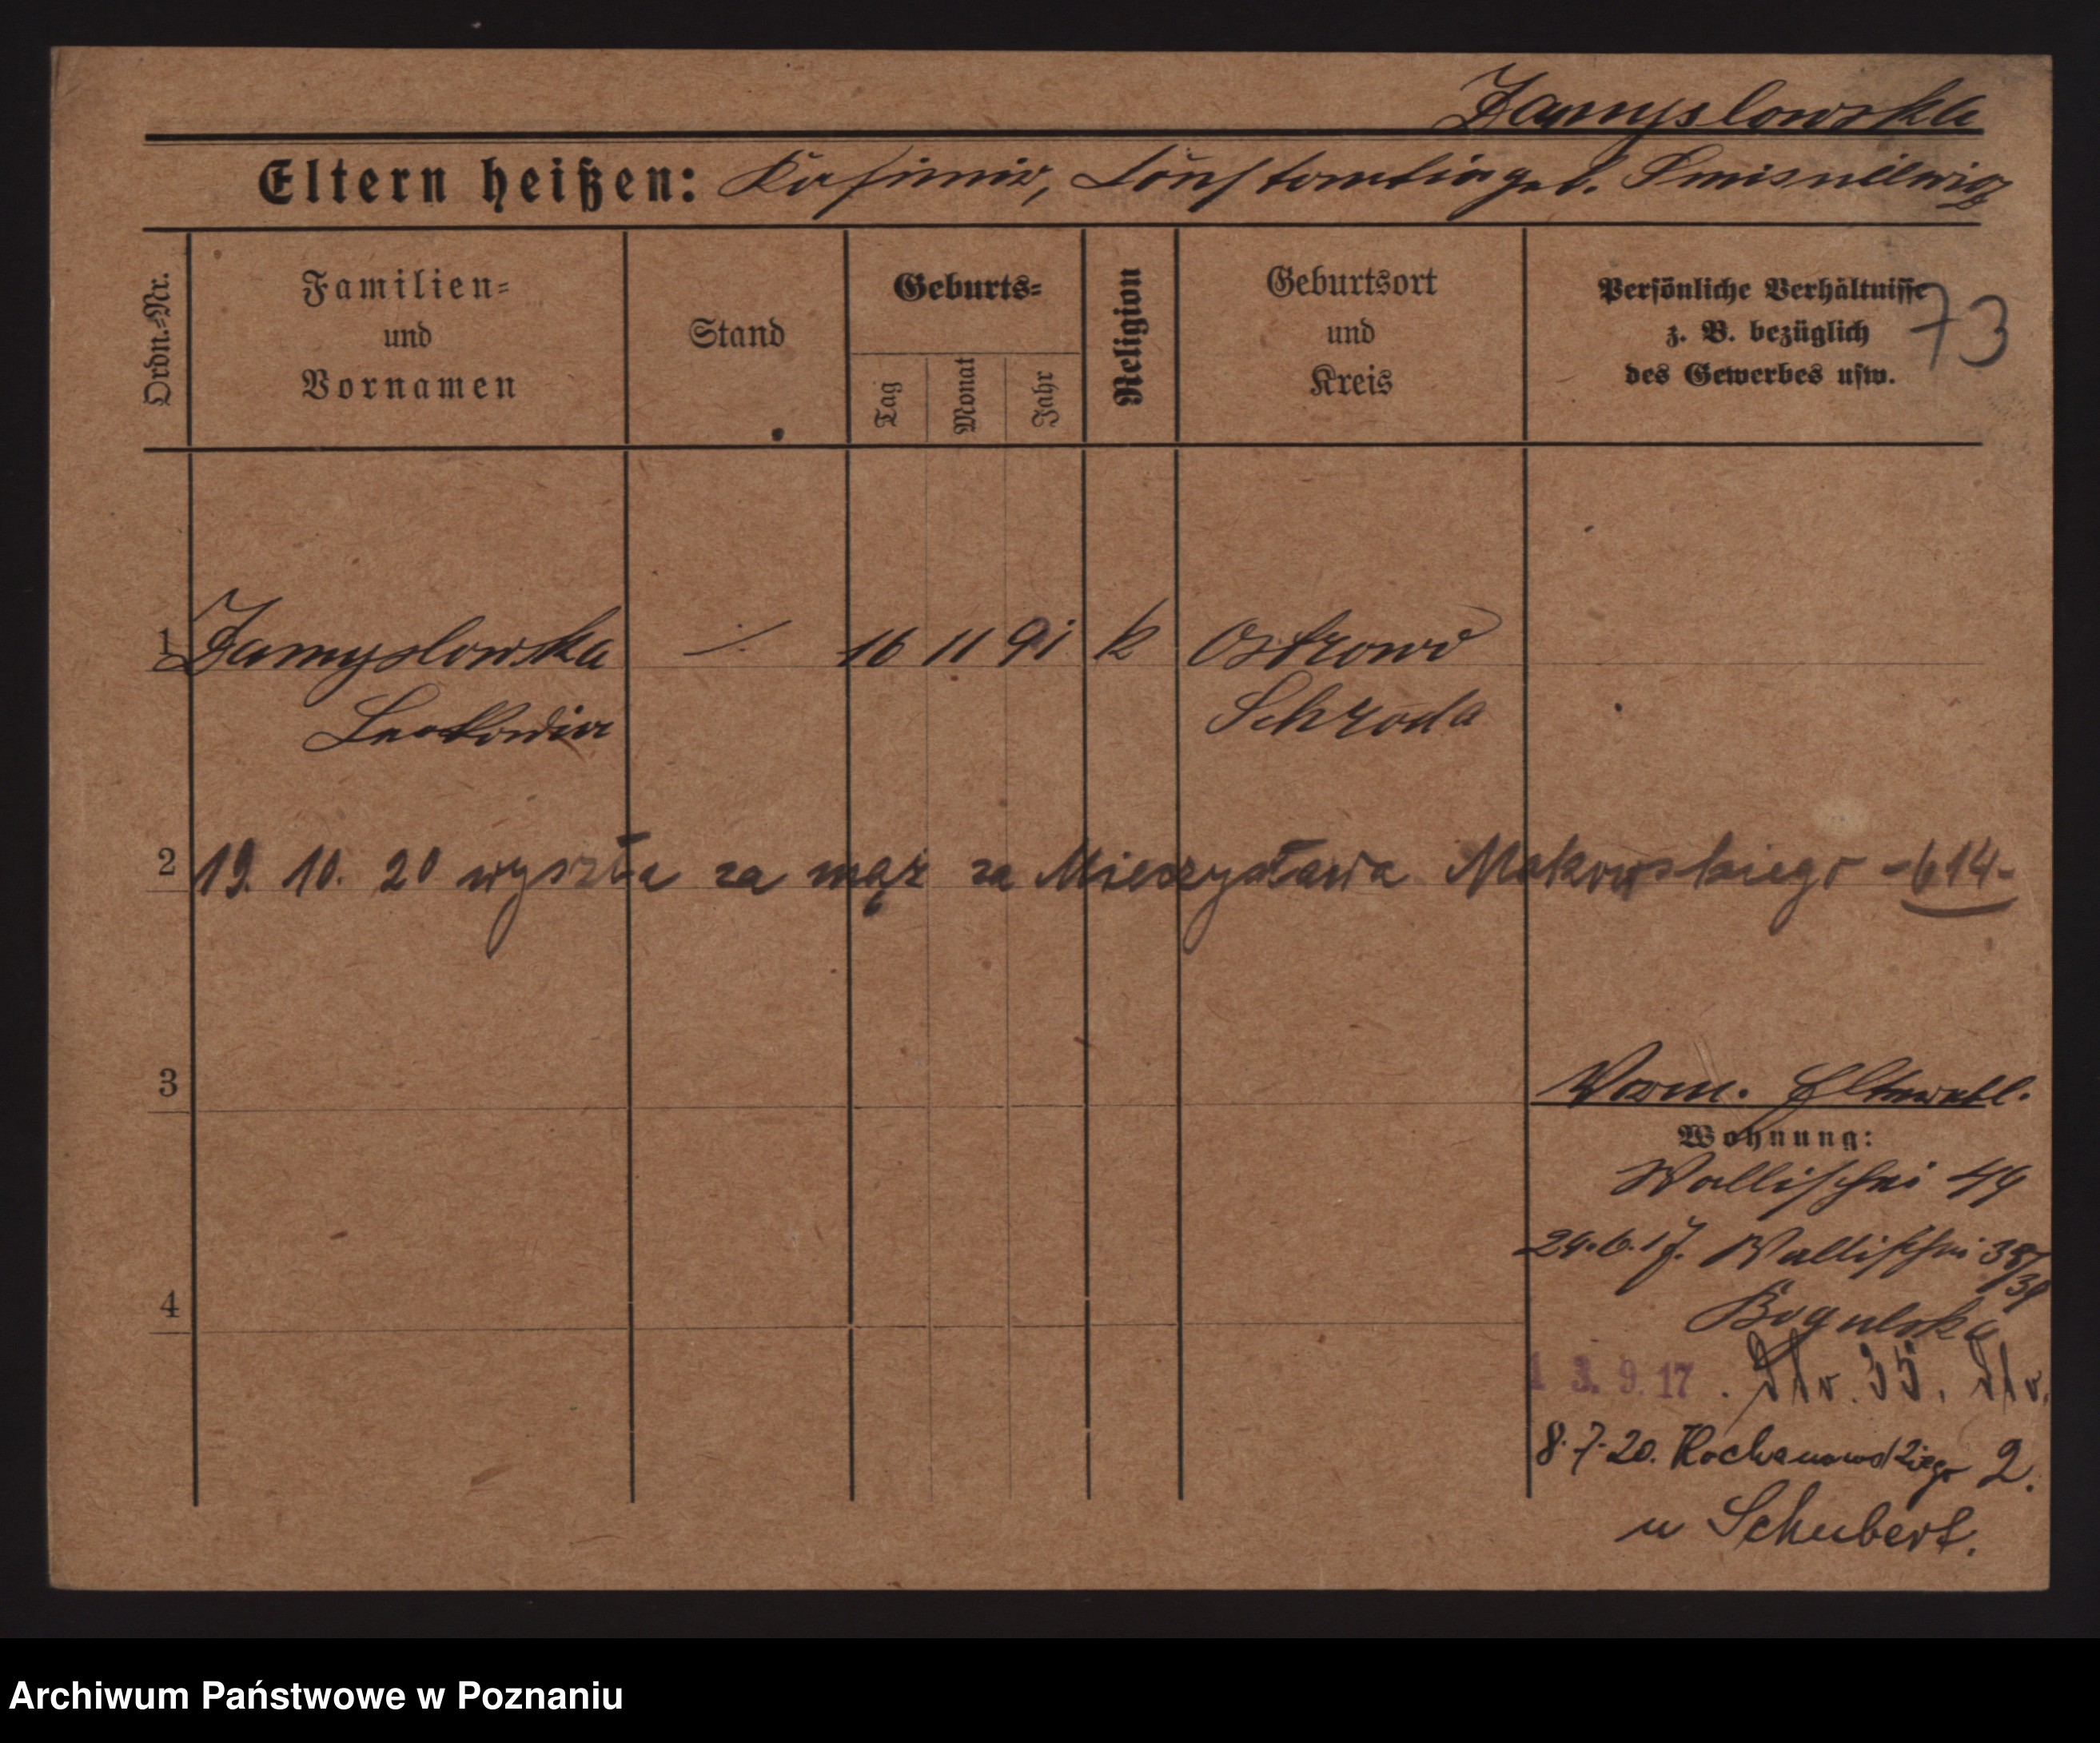 Zamyslowska
Eltern heißen: Kasimir, Konstantin geb.
Ordn.-Nr.
Familien-
und
Vornamen
Stand
Geburts-
Tag
Monat
Jahr
Religion
Geburtsort
und
Kreis
Persönliche Verhältnisse
z. B. bezüglich
des Gewerbes usw.
73
1 Zamyslowska ./. 16 11 91 k Ostrowo
Leokadia Schroda
2 19. 10. 20 wyszła za mąż za Mieczysława Makowskiego -614-
3
Vorm.
Wohnung:
Wallischei 44
29.6.17. Wallischei 38/
39
Bogulska
13. 9. 17. 35.
4
8.7.20. Kochanowskiego 2.
u Schubert.
Archiwum Państwowe w Poznaniu